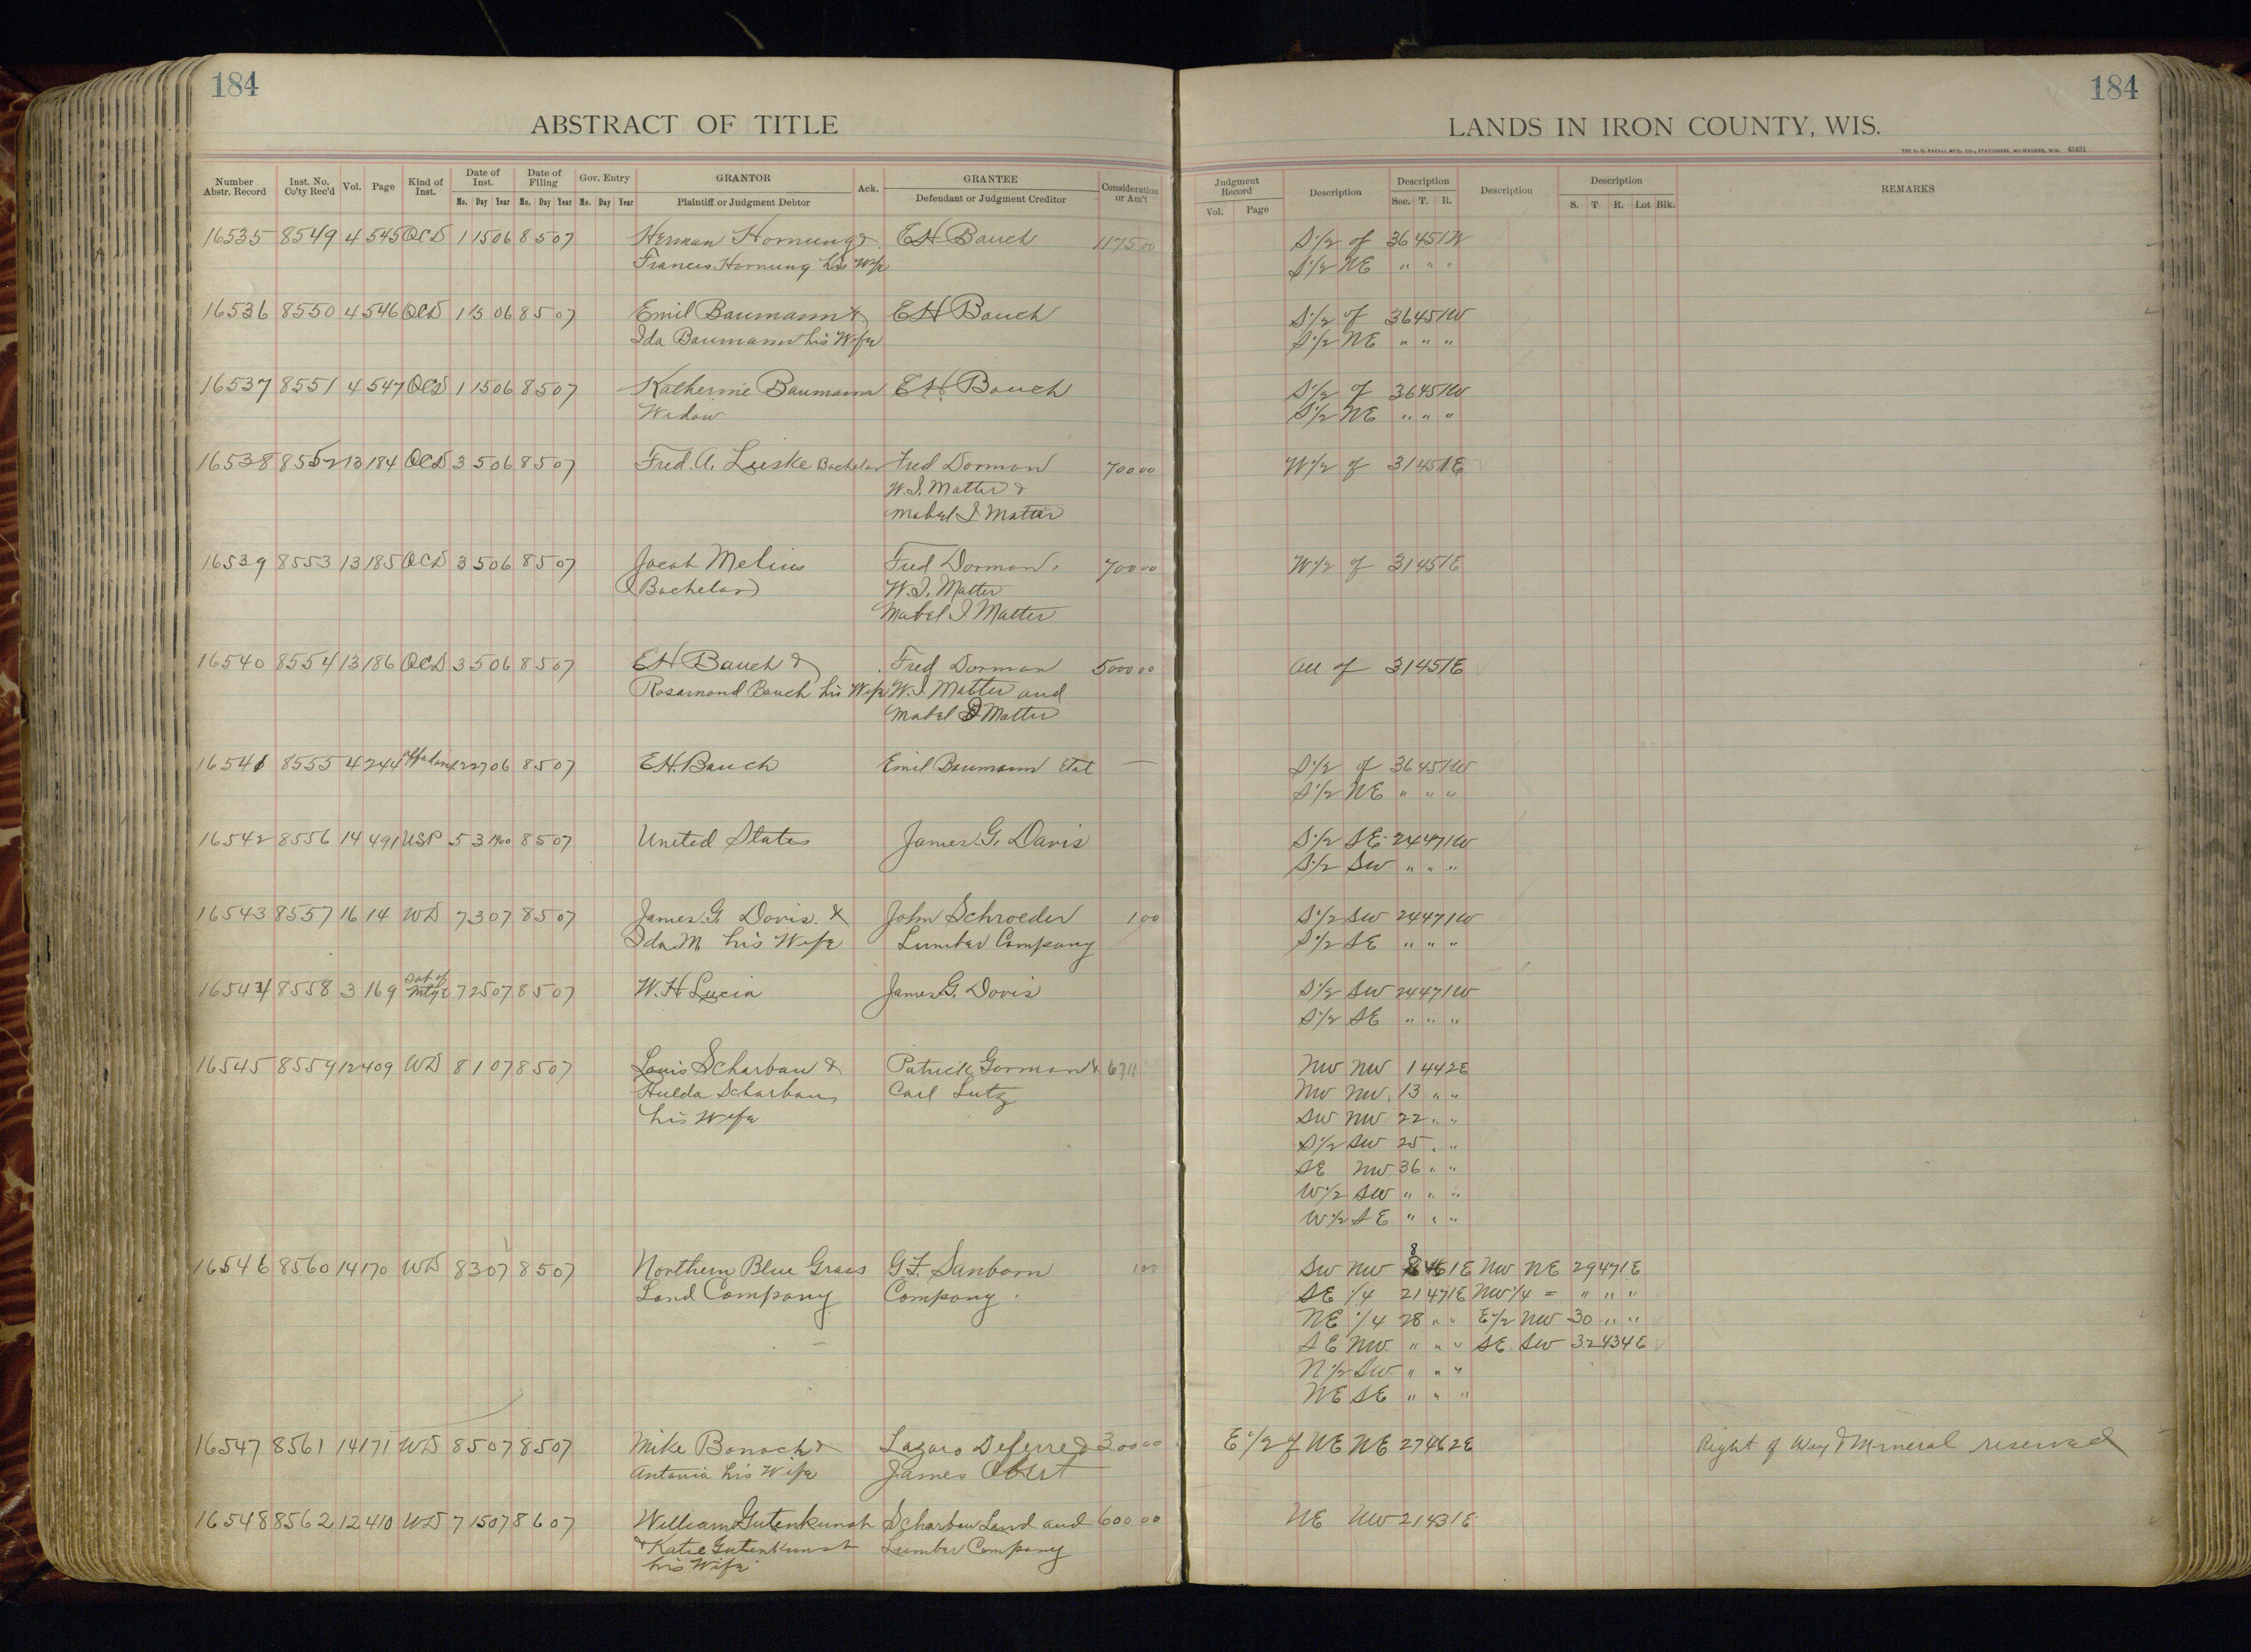 184
184
ABSTRACT OF TITLE
LANDS IN IRON COUNTY, WIS.
Number Abstr. Record Inst. No. Co'ty Rec'd Vol. Page Kind of Inst. Date of Inst. Mo. Day Year Date of Filing Mo. Day Year Gov. Entry Mo. Day Year GRANTOR Plaintiff or Judgment Debtor Ack. GRANTEE Defendant or Judgment Creditor Consideration or Am't Judgment Record Vol. Page Description Description Sec. T. R. Description Description S. T. R. Lot Blk. REMARKS
16535 8549 4 545 QCD 1 15 06 8 5 07 Herman Hornung & EH Bauch 1175 00 S 1/2 of 36 45 1W
Frances Hornung his Wife S 1/2 NE " " "
16536 8550 4 546 QCD 1 13 06 8 5 07 Emil Baumann & EH Bauch S 1/2 of 36 45 1W
Ida Baumann his Wife S 1/2 NE " " "
16537 8551 4 547 QCD 1 15 06 8 5 07 Katherine Baumann EH Bauch S 1/2 of 36 45 1W
Widow S 1/2 NE " " "
16538 8552 13 184 QCD 3 5 06 8 5 07 Fred. A. Lueske Bachelor Fred Dorman 700 00 W 1/2 of 31 45 1E
W. I. Matter &
Mabel I Matter
16539 8553 13 185 QCD 3 5 06 8 5 07 Jacob Melius Fred Dorman 700 00 W 1/2 of 31 45 1E
(Bachelor) W. I. Matter
Mabel I Matter
16540 8554 13 186 QCD 3 5 06 8 5 07 EH Bauch & Fred Dorman 5000 00 All of 31 45 1E
Rosamond Bauch his Wife W. I Matter and
Mabel I Matter
16541 8555 4 244 Affidavit 12 27 06 8 5 07 E.H. Bauch Emil Baumann Etal — S 1/2 of 36 45 1W
S 1/2 NE " " "
16542 8556 14 491 USP 5 3 1900 8 5 07 United States James G. Davis S 1/2 SE 24 47 1W
S 1/2 SW " " "
16543 8557 16 14 WD 7 3 07 8 5 07 James G. Davis & John Schroeder 1 00 S 1/2 SW 24 47 1W
Ida M his Wife Lumber Company S 1/2 SE " " "
16544 8558 3 169 Sat of Mtge 7 25 07 8 5 07 W. H Lucia James G. Davis S 1/2 SW 24 47 1W
S 1/2 SE " " "
16545 8559 12 409 WD 8 1 07 8 5 07 Louis Scharbau & Patrick Gorman & 6711 NW NW 1 44 2E
Hulda Scharbau Carl Lutz NW NW 13 " "
his Wife SW NW 22 " "
S 1/2 SW 25 " "
SE NW 36 " "
W 1/2 SW " " "
W 1/2 SE " " "
16546 8560 14 170 WD 8 3 07 8 5 07 Northern Blue Grass G F. Sanborn 1 00 SW NW 8 46 1E NW NE 29 47 1E
Land Company Company SE 1/4 21 47 1E NW 1/4 = " " "
NE 1/4 28 " " E 1/2 NW 30 " "
SE NW " " " SE SW 32 43 4E
N 1/2 SW " " "
NE SE " " "
16547 8561 14 171 WD 8 5 07 8 5 07 Mike Bonack & Lazaro Deferre & 300 00 E 1/2 of NE NE 27 46 2E Right of Way & Mineral reserved
Antonia his Wife James Obert
16548 8562 12 410 WD 7 15 07 8 6 07 William Gutenkunst Scharbau Land and 600 00 NE NW 21 43 1E
& Katie Gutenkunst Lumber Company
his Wife